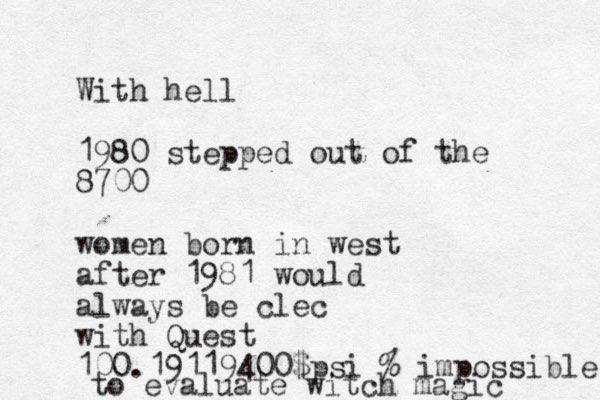 With hell
1980 stepped out of the
8700
women born in west
after 1981 would
always be clec
with Quest
100.19119400$psi % impossible
to evaluate witch magic